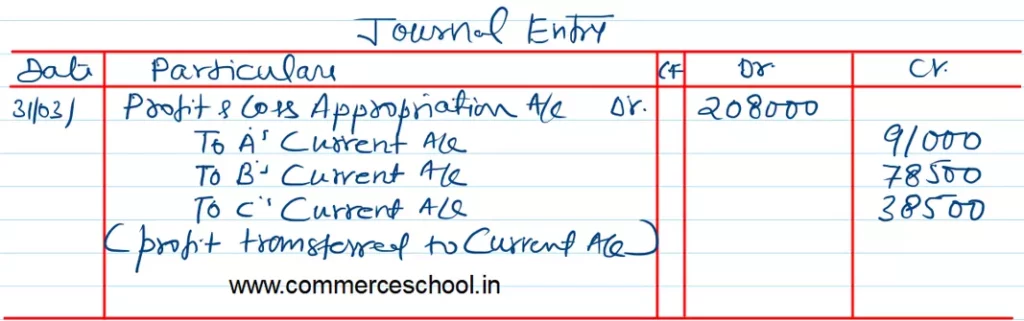 Journal Entry
Date Particulars LF Dr. Cr.
31/03/ Profit & Loss Appropriation A/c Dr. 208000
To A's Current A/c 91000
To B's Current A/c 78500
To C's Current A/c 38500
(profit transferred to Current A/c)
www.commerceschool.in